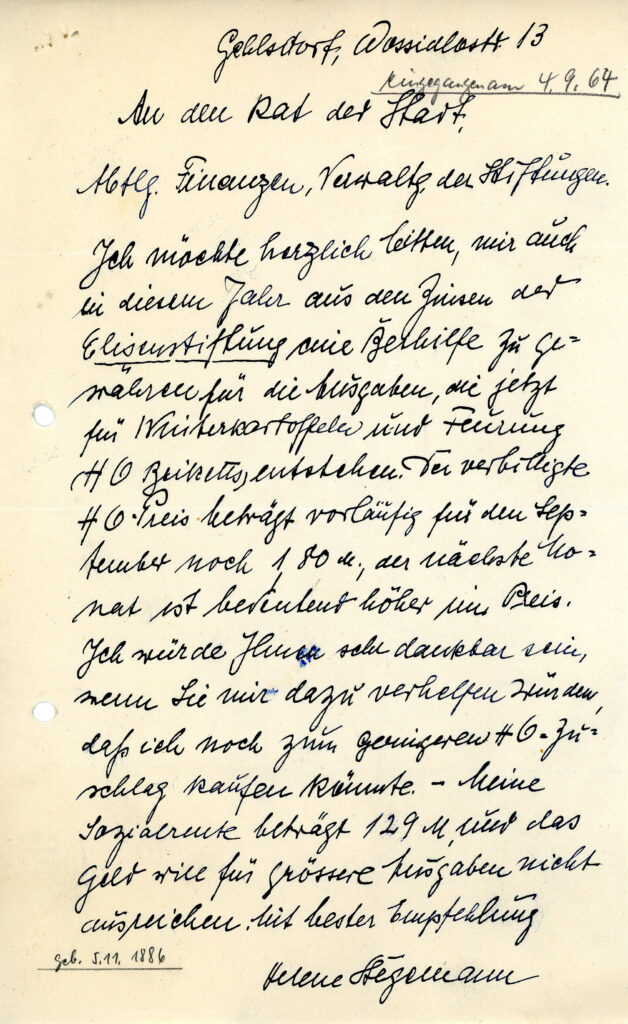 Gehlsdorf, Wossidlostr 13
eingegangen am 4.9.64
An den Rat der Stadt,
Abtlg. Finanzen, Verwaltg. der Stiftungen.
Ich möchte herzlich bitten, mir auch
in diesem Jahr aus den Zinsen der
Elisenstiftung eine Beihilfe zu ge=
währen für die Ausgaben, die jetzt
für Winterkartoffeln und Feurung
HO Briketts, entstehen. Der verbilligte
HO-Preis beträgt vorläufig für den Sep=
tember noch 1,80 M., der nächste Mo=
nat ist bedeutend höher im Preis.
Ich würde Ihnen sehr dankbar sein,
wenn Sie mir dazu verhelfen würden,
daß ich noch zum geringeren HO-Zu=
schlag kaufen könnte. – Meine
Sozialrente beträgt 129 M, und das
Geld will für grössere Ausgaben nicht
ausreichen. Mit bester Empfehlung
geb. 5.11. 1886
Helene Stegemann